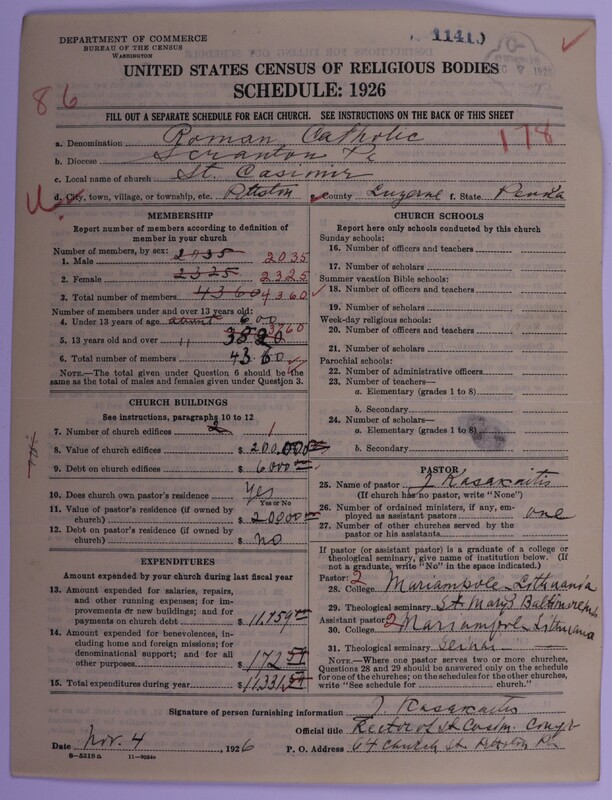 DEPARTMENT OF COMMERCE
BUREAU OF THE CENSUS
WASHINGTON
UNITED STATES CENSUS OF RELIGIOUS BODIES
SCHEDULE: 1926
86
FILL OUT A SEPARATE SCHEDULE FOR EACH CHURCH. SEE INSTRUCTIONS ON THE BACK OF THIS SHEET
178
a. Denomination Roman Catholic
b. Diocese Scranton Pa
c. Local name of church St. Casimir
d. City, town, village, or township, etc. Pittston e. County Luzerne f. State Penna
MEMBERSHIP
Report number of members according to definition of member in your church
Number of members, by sex:
1. Male 2035 2035
2. Female 2325 2325
3. Total number of members 4360 4360
Number of members under and over 13 years old:
4. Under 13 years of age about 600
5. 13 years old and over " 3760
6. Total number of members 4360
NOTE.—The total given under Question 6 should be the same as the total of males and females given under Question 3.
CHURCH BUILDINGS
See instructions, paragraphs 10 to 12
7. Number of church edifices 2 1
8. Value of church edifices $ 200,000
9. Debt on church edifices $ 6000
10. Does church own pastor's residence Yes
Yes or No
11. Value of pastor's residence (if owned by church) $ 20000
12. Debt on pastor's residence (if owned by church) $ no
EXPENDITURES
Amount expended by your church during last fiscal year
13. Amount expended for salaries, repairs, and other running expenses; for improvements or new buildings; and for payments on church debt $ 11,159
14. Amount expended for benevolences, including home and foreign missions; for denominational support; and for all other purposes $ 172
15. Total expenditures during year $ 11,331
CHURCH SCHOOLS
Report here only schools conducted by this church
Sunday schools:
16. Number of officers and teachers
17. Number of scholars
Summer vacation Bible schools:
18. Number of officers and teachers
19. Number of scholars
Week-day religious schools:
20. Number of officers and teachers
21. Number of scholars
Parochial schools:
22. Number of administrative officers
23. Number of teachers—
a. Elementary (grades 1 to 8)
b. Secondary
24. Number of scholars—
a. Elementary (grades 1 to 8)
b. Secondary
PASTOR
25. Name of pastor J Kasakaitis
(If church has no pastor, write "None")
26. Number of ordained ministers, if any, employed as assistant pastors one
27. Number of other churches served by the pastor or his assistants
If pastor (or assistant pastor) is a graduate of a college or theological seminary, give name of institution below. (If not a graduate, write "No" in the space indicated.)
Pastor: 2
28. College Mariampole Lithuania
29. Theological seminary St Marys Baltimore
Assistant pastor: 2
30. College Mariampole Lithuania
31. Theological seminary
NOTE.—Where one pastor serves two or more churches, Questions 28 and 29 should be answered only on the schedule for one of the churches; on the schedules for the other churches, write "See schedule for church."
Signature of person furnishing information J. Kasakaitis
Official title Rector of St Casim. Congr
Date Nov. 4, 1926 P. O. Address 64 Church St. Pittston Pa
8—5218a 11—9204